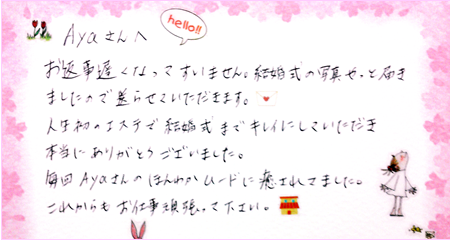 hello!!
Ayaさんへ
お返事遅くなってすいません。結婚式の写真やっと届き
ましたので送らせていただきます。
人生初のエステで結婚式までキレイにしていただき
本当にありがとうございました。
毎回Ayaさんのほんわかムードに癒されてました。
これからもお仕事頑張って下さい。